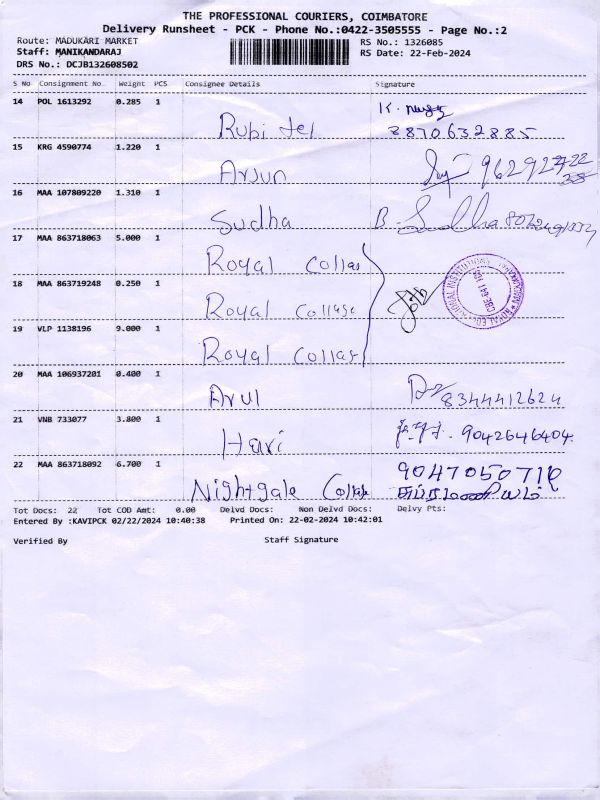 THE PROFESSIONAL COURIERS, COIMBATORE
Delivery Runsheet - PCK - Phone No.:0422-3505555 - Page No.:2
Route: MADUKARI MARKET RS No.: 1326085
Staff: MANIKANDARAJ RS Date: 22-Feb-2024
DRS No.: DCJB132608502
S No Consignment No. Weight PCS Consignee Details Signature
14 POL 1613292 0.285 1
Rubi tel
15 KRG 4590774 1.220 1
Arjun
16 MAA 107809220 1.310 1
Sudha B. Sudha
17 MAA 863718063 5.000 1
Royal
18 MAA 863719248 0.250 1
Royal
19 VLP 1138196 9.000 1
Royal
20 MAA 106937201 0.400 1
Arul 8344412624
21 VNB 733077 3.800 1
Hari 9042646404.
22 MAA 863718092 6.700 1 9047050710
Nightgale
Tot Docs: 22 Tot COD Amt: 0.00 Delvd Docs: Non Delvd Docs: Delvy Pts:
Entered By :KAVIPCK 02/22/2024 10:40:38 Printed On: 22-02-2024 10:42:01
Verified By Staff Signature